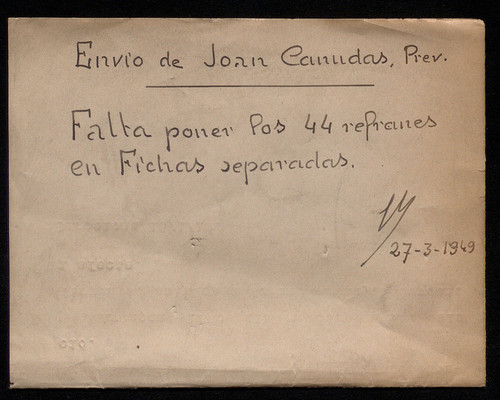 Envio de Joan Canudas, Prev.
Falta poner los 44 refranes
en Fichas separadas.
27-3-1949